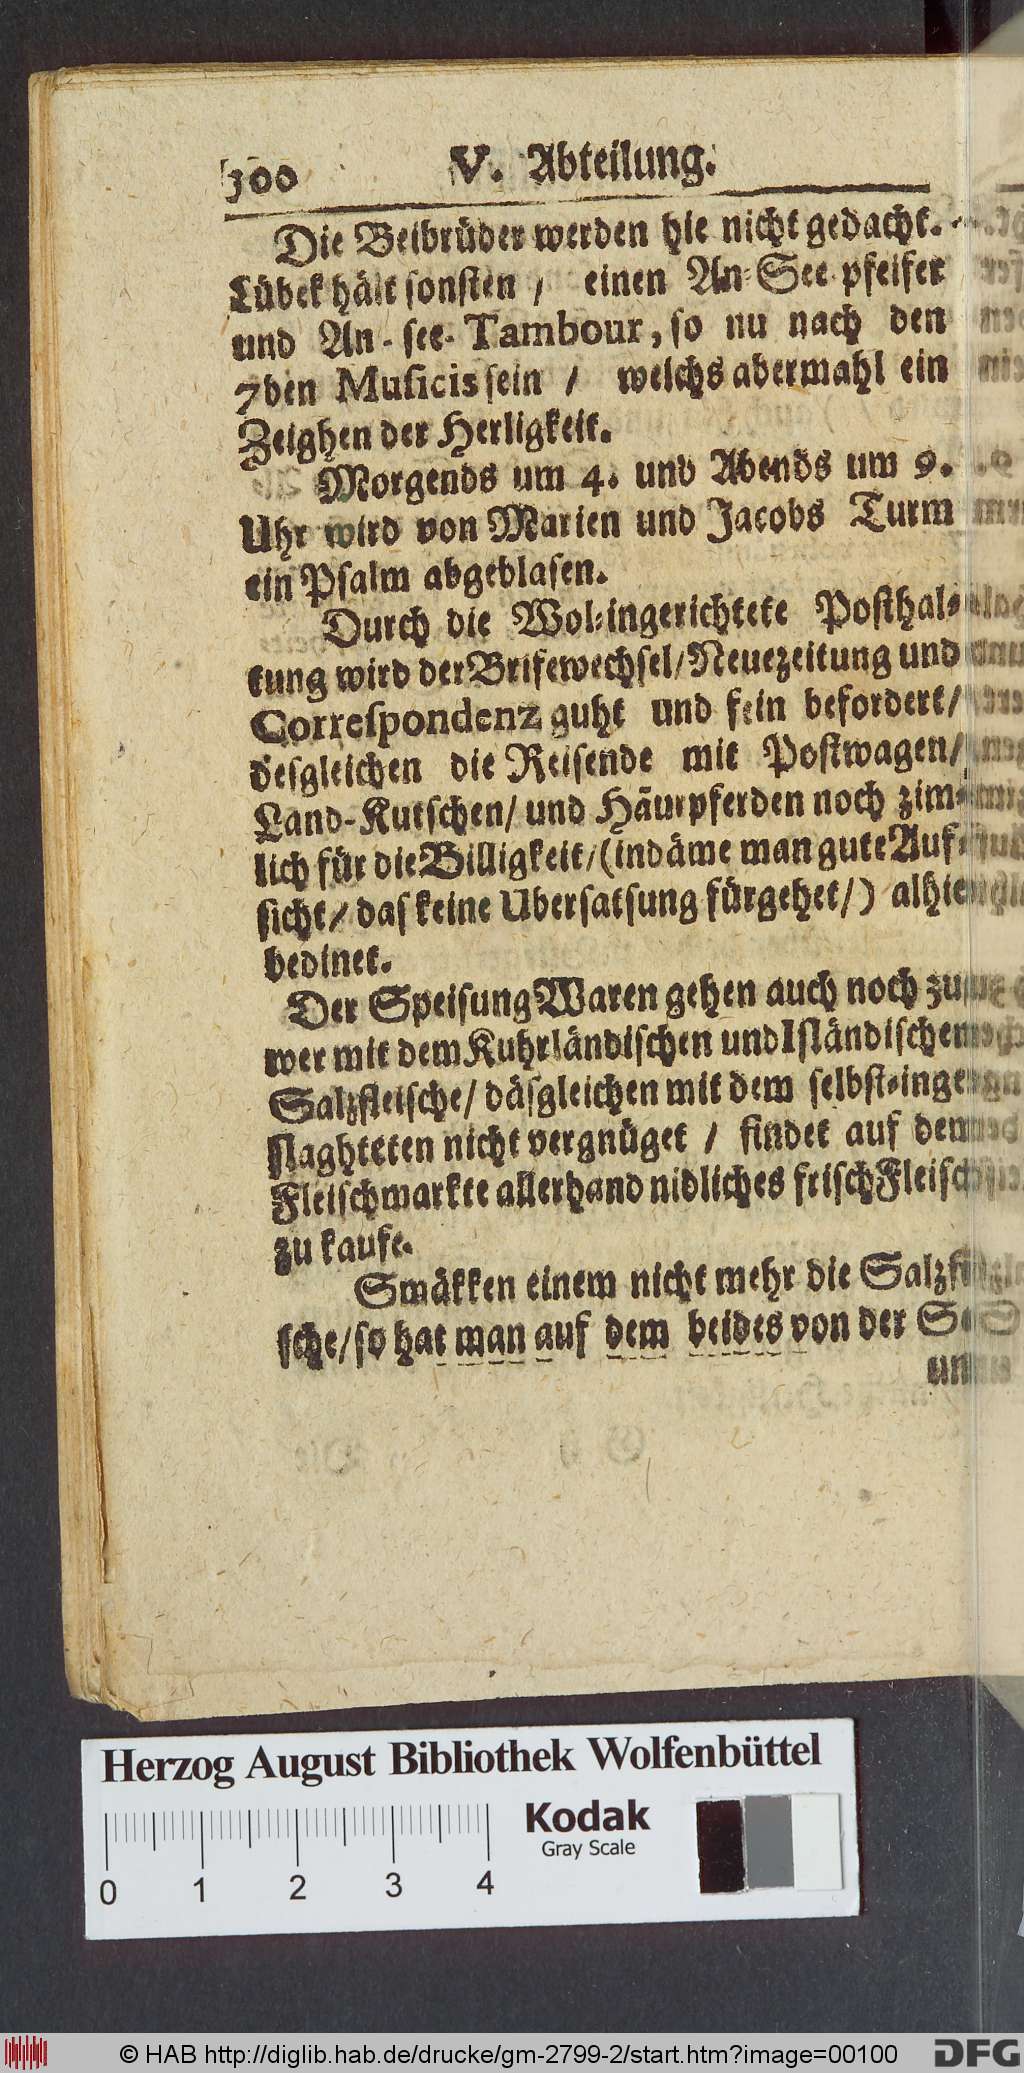 100 V. Abteilung.
Die Beibrüder werden hie nicht gedacht.
Lübek hält sonsten / einen An-See pfeifer
und An-see-Tambour, so nu nach den
7ben Musicis sein / welchs abermahl ein
Zeighen der Herligkeit.
Morgends um 4. und Abends um 9.
Uhr wird von Marien und Jacobs Turm
ein Psalm abgeblasen.
Durch die Wol-ingerichtete Posthal-
tung wird der Brifewechsel / Neuezeitung und
Correspondenz guht und fein befordert /
desgleichen die Reisende mit Postwagen /
Land-Kutschen / und Häurpferden noch zim-
lich für die Billigkeit / (indäme man gute Auf-
sicht / das keine Ubersatsung fürgehet /) alhie
bedinet.
Der Speisung Waren gehen auch noch zu
wer mit dem Kuhrländischen und Isländischen
Salzfleische / däsgleichen mit dem selbst-inge-
slaghteten nicht vergnüget / findet auf dem
Fleischmarkte allerhand nidliches frisch Fleisch
zu kaufe.
Smäkken einem nicht mehr die Salzfi-
sche / so hat man auf dem beides von der Se
un
Herzog August Bibliothek Wolfenbüttel
Kodak
Gray Scale
0 1 2 3 4
© HAB http://diglib.hab.de/drucke/gm-2799-2/start.htm?image=00100
DFG